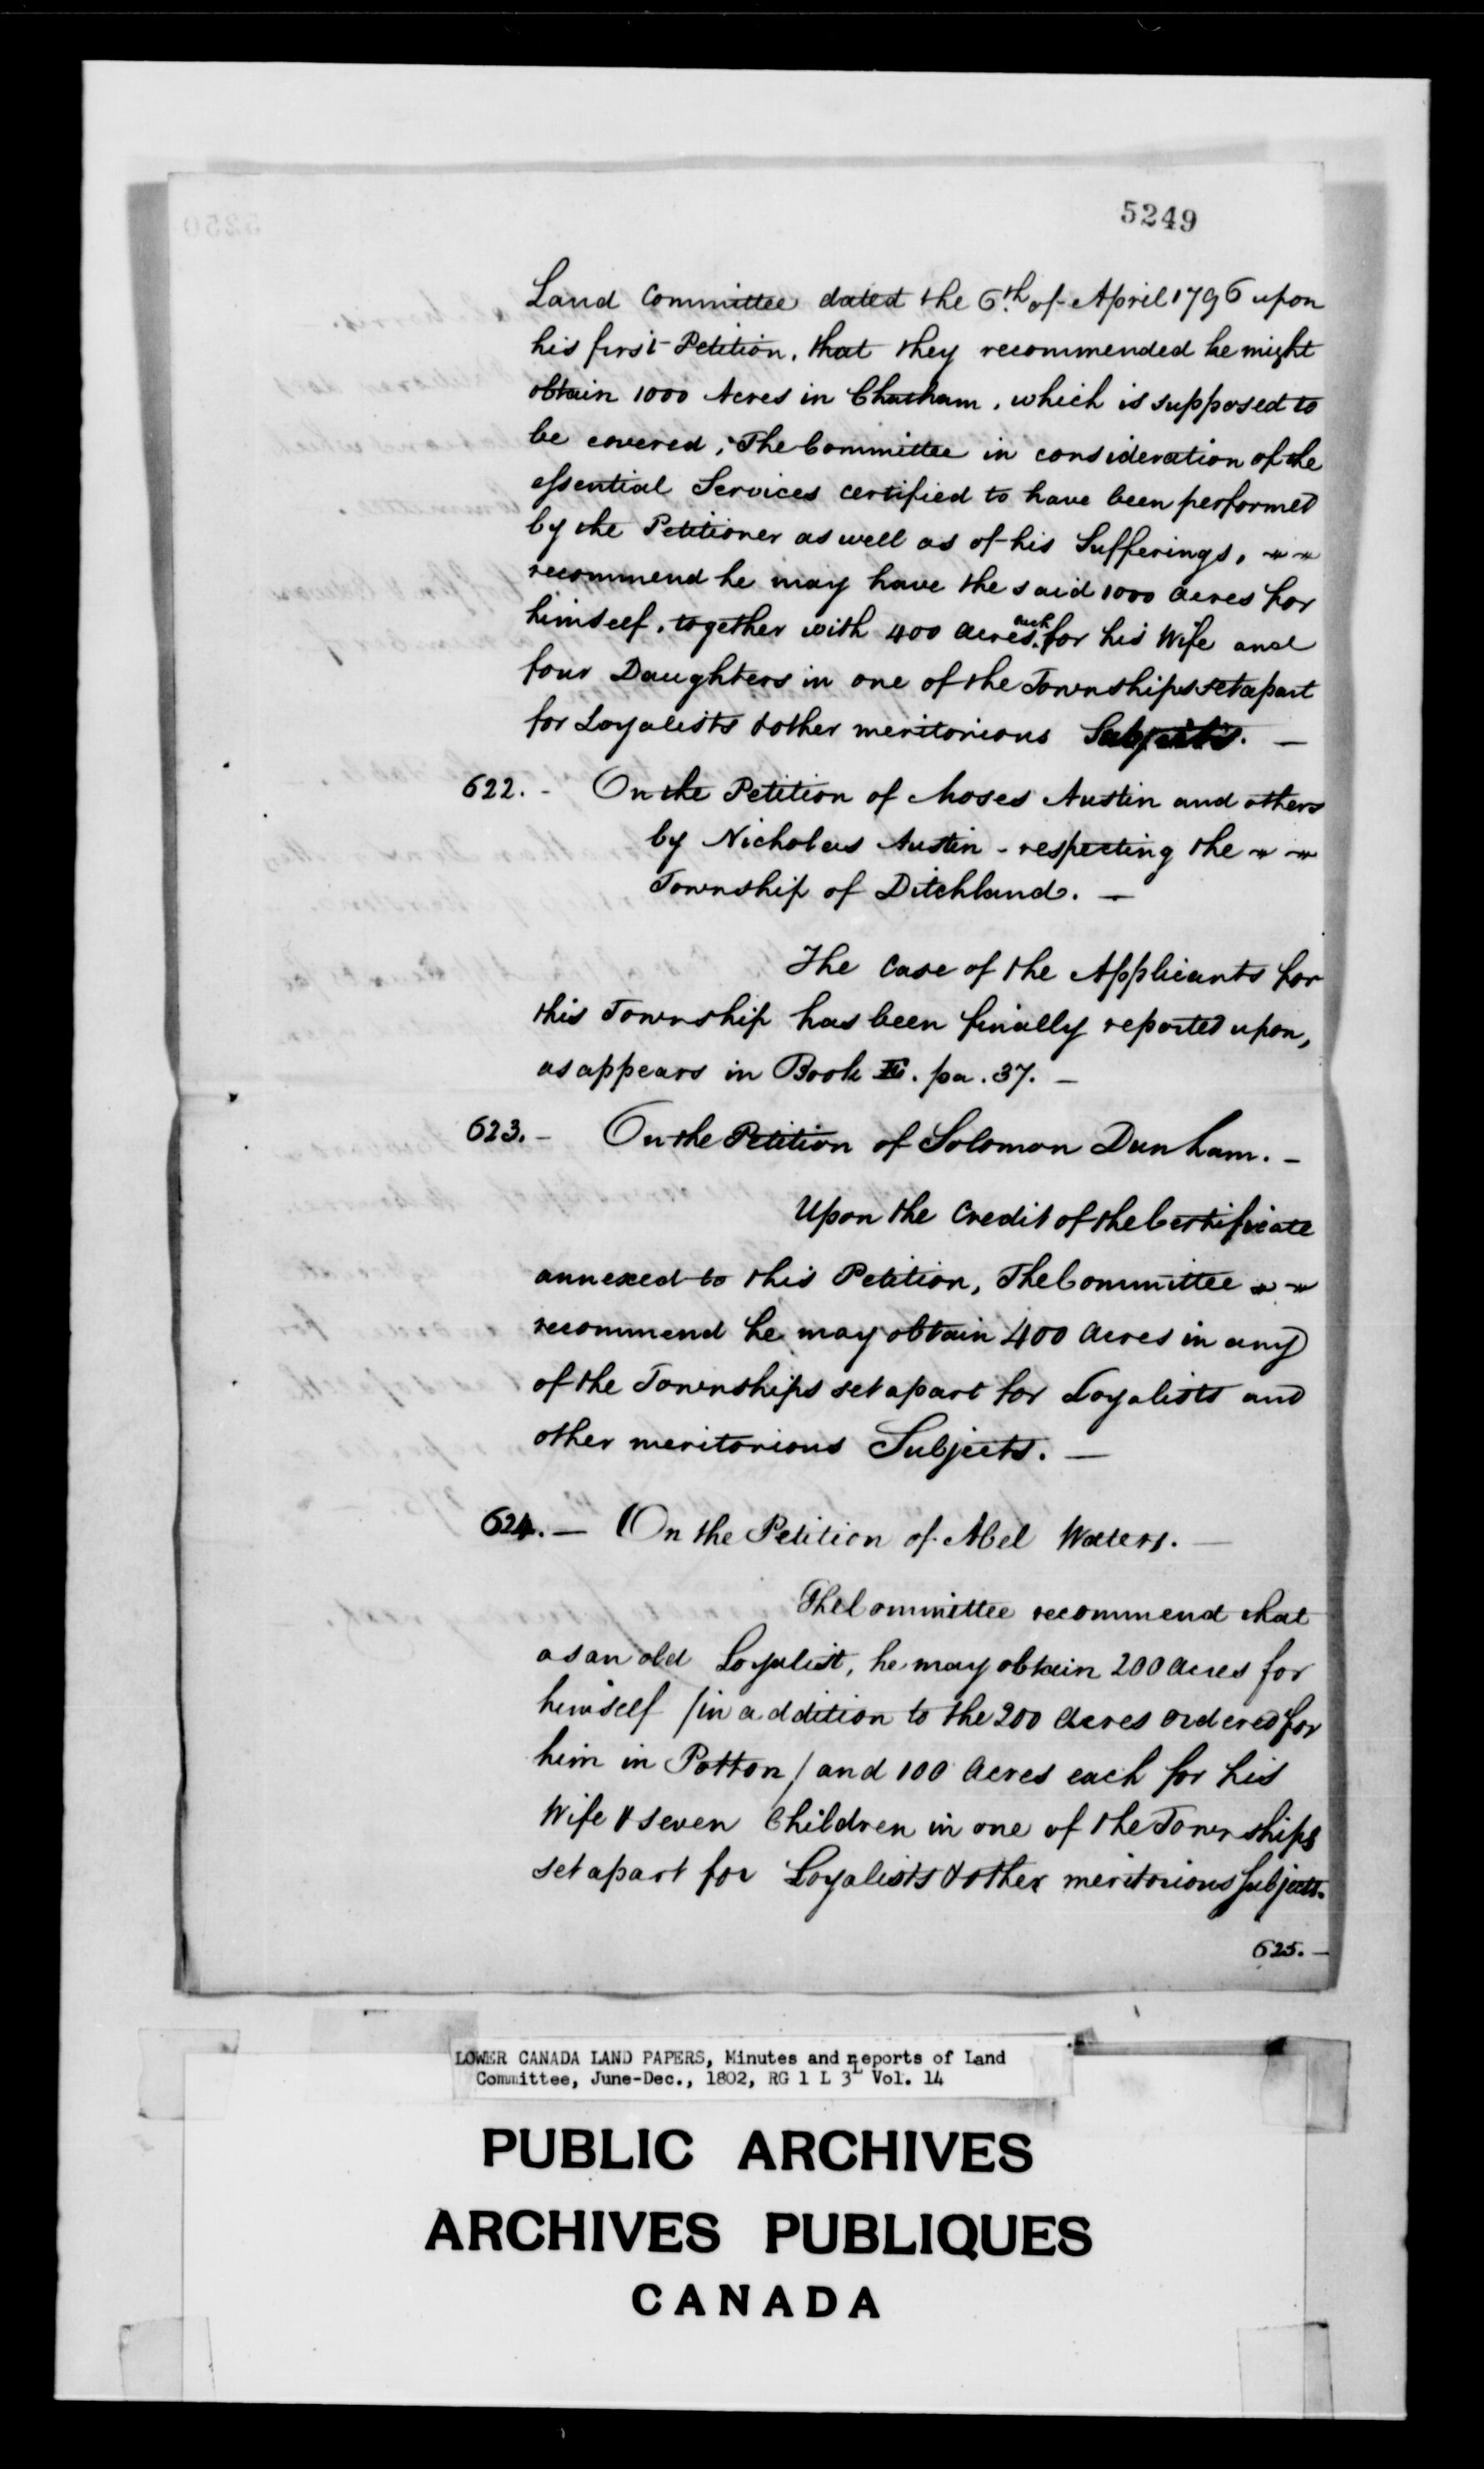 5249
Land Committee dated the 6th of April 1796 upon
his first Petition, that they recommended he might
obtain 1000 Acres in Chatham, which is supposed to
be covered; The Committee in consideration of the
essential Services certified to have been performed
by the Petitioner as well as of his Sufferings,
recommend he may have the said 1000 Acres for
himself, together with 400 Acres each for his Wife and
four Daughters in one of the Townships set apart
for Loyalists & other meritorious Subjects. —
622. - On the Petition of Moses Austin and others
by Nicholas Austin - respecting the
Township of Ditchland. —
The Case of the Applicants for
this Township has been finally reported upon,
as appears in Book . pa. 37. —
623. - On the Petition of Solomon Dunham. -
Upon the Credit of the Certificate
annexed to this Petition, The Committee
recommend he may obtain 400 Acres in any
of the Townships set apart for Loyalists and
other meritorious Subjects. —
624. — On the Petition of Abel Waters. —
The Committee recommend that
as an old Loyalist, he may obtain 200 Acres for
himself /in addition to the 200 Acres ordered for
him in Potton/ and 100 Acres each for his
Wife & seven Children in one of the Townships
set apart for Loyalists & other meritorious Subjects.
625. —
LOWER CANADA LAND PAPERS, Minutes and Reports of Land
Committee, June-Dec., 1802, RG 1 L 3L Vol. 14
PUBLIC ARCHIVES
ARCHIVES PUBLIQUES
CANADA